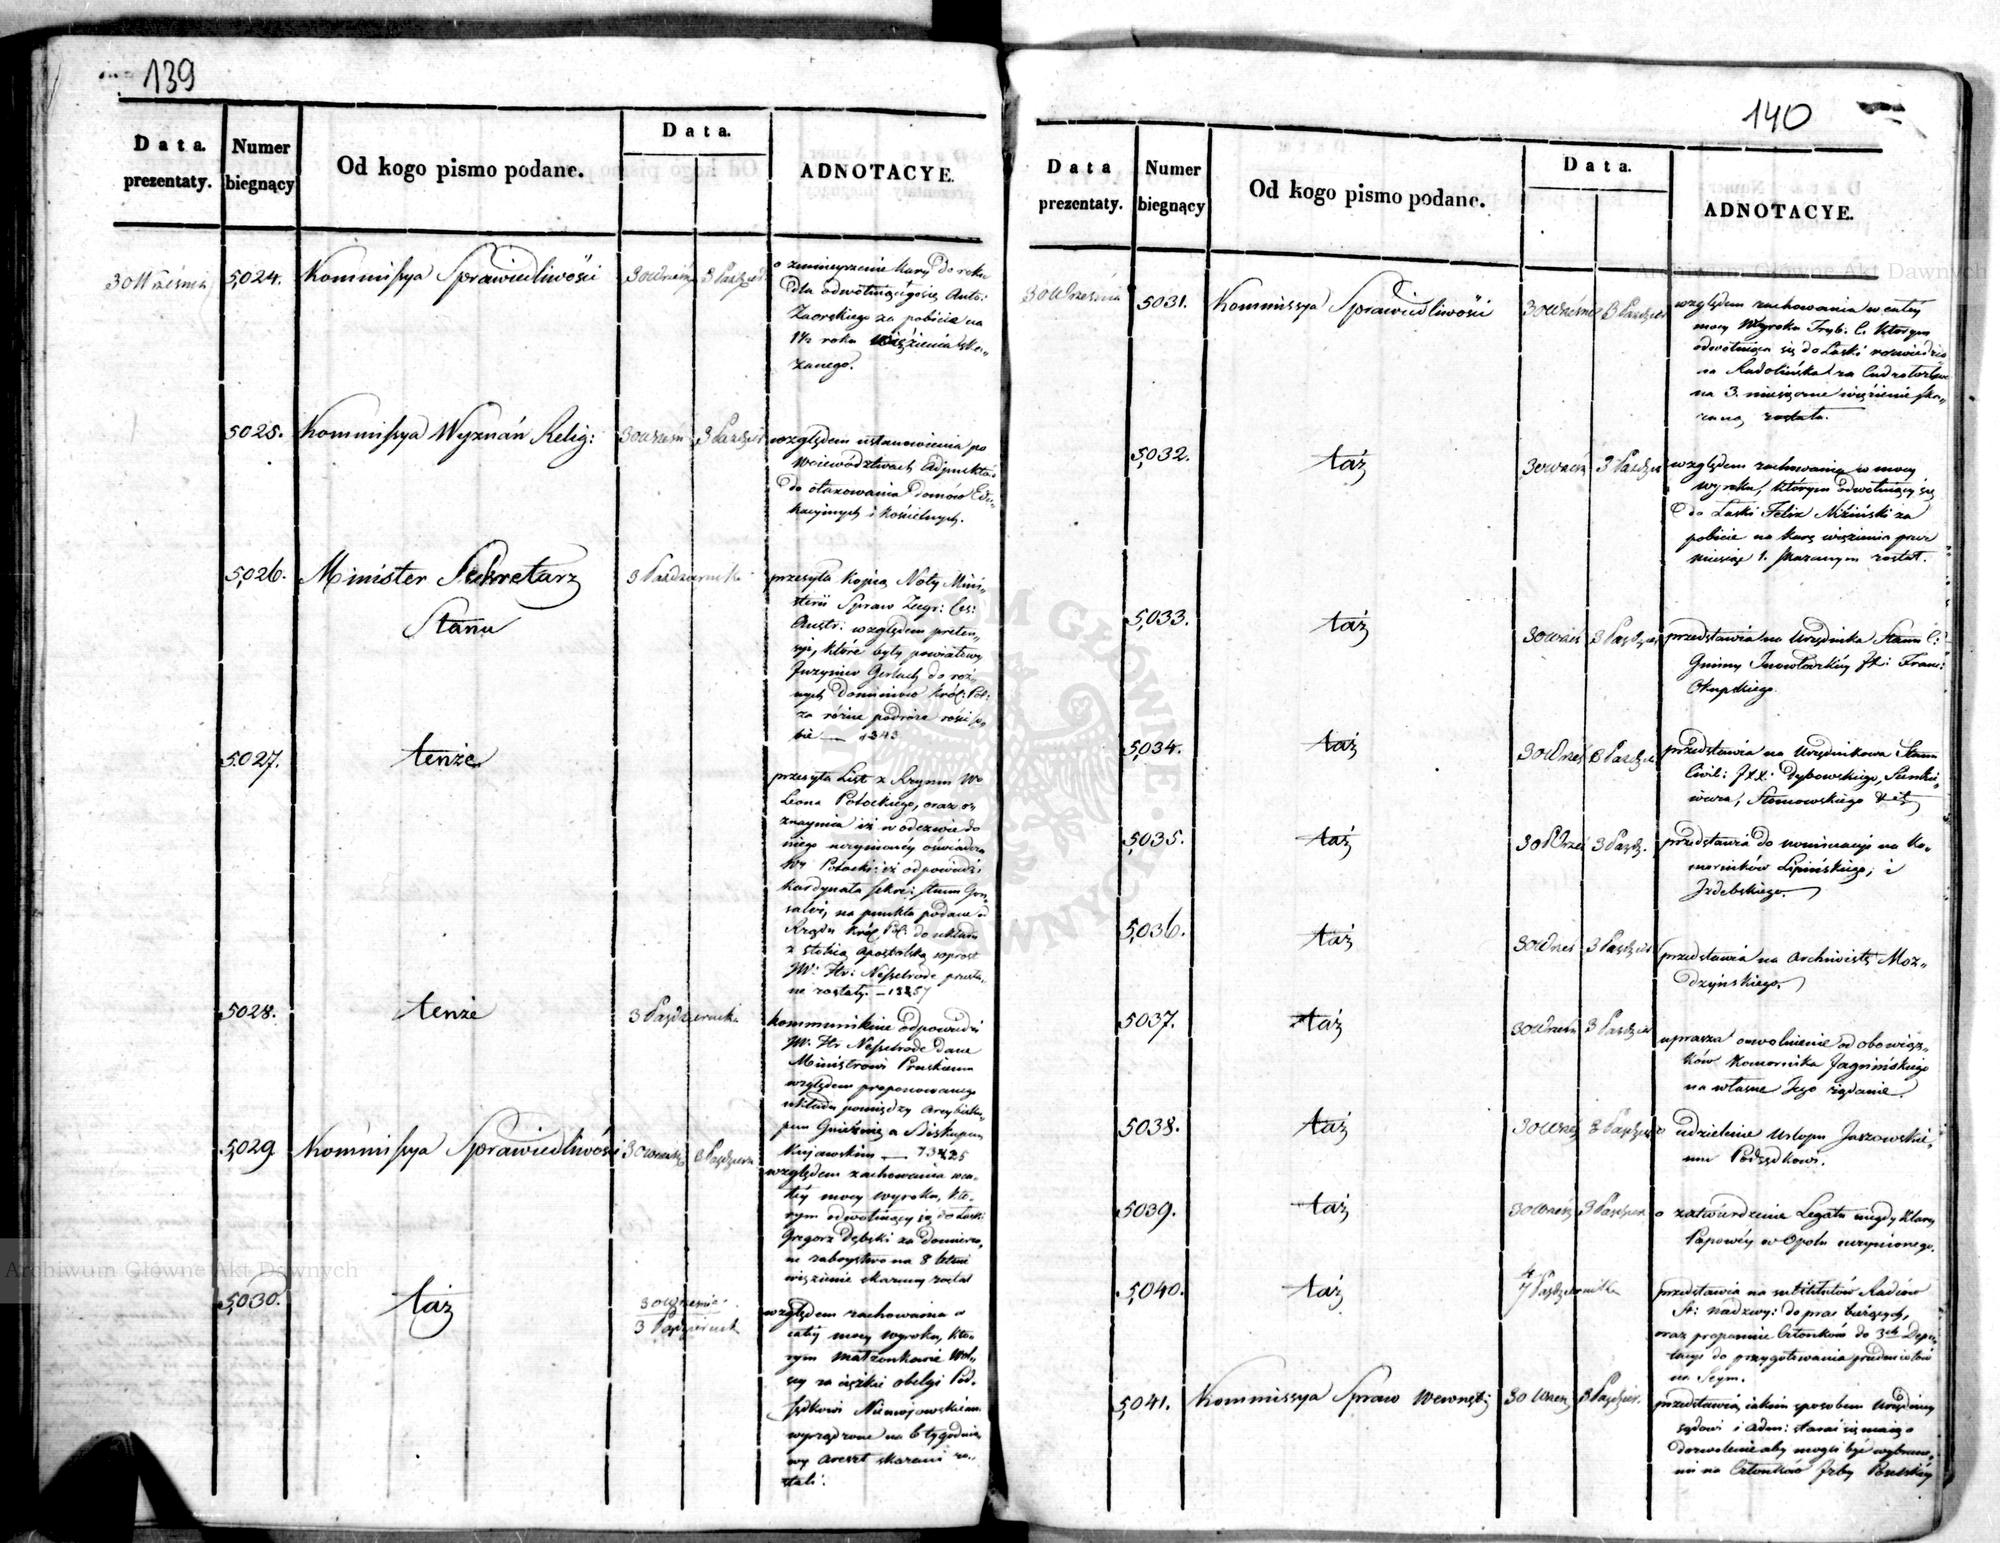 139
Data prezentaty.
Numer biegnący
Od kogo pismo podane.
Data.
ADNOTACYE.
30 Września
5024.
Kommissya Sprawiedliwości
30 Wrześ 3 Paźdz
o zmnieyszenie kary do roku
dla odwołuiącego się Anto:
Zaorskiego za pobicie na
1½ roku więzienia ska„
zanego.
5025.
Kommissya Wyznań Relig:
30 Wrześ 3 Paźdz
względem ustanowienia po
Województwach Adjunktów
do otaxowania domów Edu„
kacyinych i kościelnych.
5026.
Minister Sekretarz
Stanu
3 Października
przesyła kopią Noty Mini„
sterii Spraw Zagr: Ces:
Austr: względem preten„
syi, które były powiatowy
Inżynier Gerlach do róż„
nych Dominiow Król: Pol:
za różne podróże rości so„
bie — 1343
5027.
tenże
przesyła List z Rzymu W°
Leona Potockiego, oraz oz
znaymia iż w odezwie do
niego uczynioney oświadcza
Wy Potocki: iż odpowiedź
Kardynała Sekre: Stanu Gon„
salvi, na punkta podane od
Rządu Król. Pol: do układu
z stolicą apostolską wprost
JW: Hr: Nesselrode przesła„
ne zostały. — 13257
5028.
tenże
3 Października
kommunikuie odpowiedź
JW. Hr Nesselrode dane
Ministrowi Pruskiemu
względem proponowanego
układu pomiędzy Arcybisku„
pem Gnieźnień a Biskupem
Kujawskim — 13425
5029
Kommissya Sprawiedliwości
30 Wrześ 3 Paździer
względem zachowania w ca„
łéy mocy wyroku, któ„
rym odwołuiący się do Łaski
Grzegorz Dębski za domierzo„
ne zaboystwo na 8 letnie
więzienie skazany został
5030.
taż
30 Wrześnie
3 Październik
względem zachowania w
całéy mocy wyroku, któ„
rym małżonkowie Wol„
scy za ciężkie obelgi Pod„
sędkowi Niemojowskiemu
wyrządzone na 6 tygodnio„
wy areszt skazani zo„
stali.
140
Data prezentaty.
Numer biegnący
Od kogo pismo podane.
Data.
ADNOTACYE.
30 Września
5031.
Kommissya Sprawiedliwości
30 Wrześnie 3 Paździer
względem zachowania w całéy
mocy Wyroku Tryb. C. którym
odwołuiąca się do Łaski rozwiedzio
na Radolińska za Cudzołoztwo
na 3. miesięczne więzienie ska„
zaną została.
5032.
taż
30 Wrześ 3 Paździer
względem zachowania w mocy
wyroku, którym odwołuiący się
do Łaski Felix Niziński za
pobicie na karę więzienia przez
miesiąc 1. skazanym został.
5033.
taż
30 Wrześ 3 Paździer
przedstawia na Urzędnika Stanu C:
Gminy Inowłodzkiéy JX: Franc:
Okupskiego.
5034.
taż
30 Wrześ 3 Paździe.
przedstawia na Urzędników Stanu
Civil: JXX: Dybowskiego, Sienkie„
wicza, Słomowskiego &
5035.
taż
30 Wrześ 3 Paźdz.
przedstawia do nominacyi na Ko„
morników Lipińskiego, i
Izdebskiego.
5036.
taż
30 Wrześ 3 Paździer
przedstawia na Archiwistę Moz„
dzyńskiego.
5037.
taż
30 Wrześ 3 Paździer
uprasza o uwolnienie od obowiąz„
ków Komornika Jagnińskiego
na własne Jego żądanie.
5038.
taż
30 Wrześ 3 Paździer
o udzielenie Urlopu Jaszowskie„
mu Podsędkowi.
5039.
taż
30 Wrześ 3 Paździer
o zatwierdzenie Legatu niegdy Klary
Papowéy w Opolu uczynionego.
5040.
taż
4
7 Października
przedstawia na substitutów Radców
St: nadzwy: do prac bieżących,
oraz proponuie Członków do 3ch Depu„
tacyi do przygotowania przedmiotów
na Seym.
5041.
Kommissya Spraw Wewnętr
30 Wrześ 3 Paździer.
przedstawia, iakim sposobem Urzędnicy
sądowi i Adm: starać się maią o
dozwolenie aby mogli być wybrane„
mi na Członków Izby Poselskiéy
Archiwum Główne Akt Dawnych
Archiwum Główne Akt Dawnych
ARCHIWUM GŁÓWNE AKT DAWNYCH